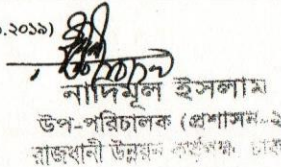 .২০১৯)
নাদিমূল ইসলাম
উপ-পরিচালক (প্রশাসন-২
রাজধানী উন্নয়ন কর্তৃপক্ষ, ঢাকা